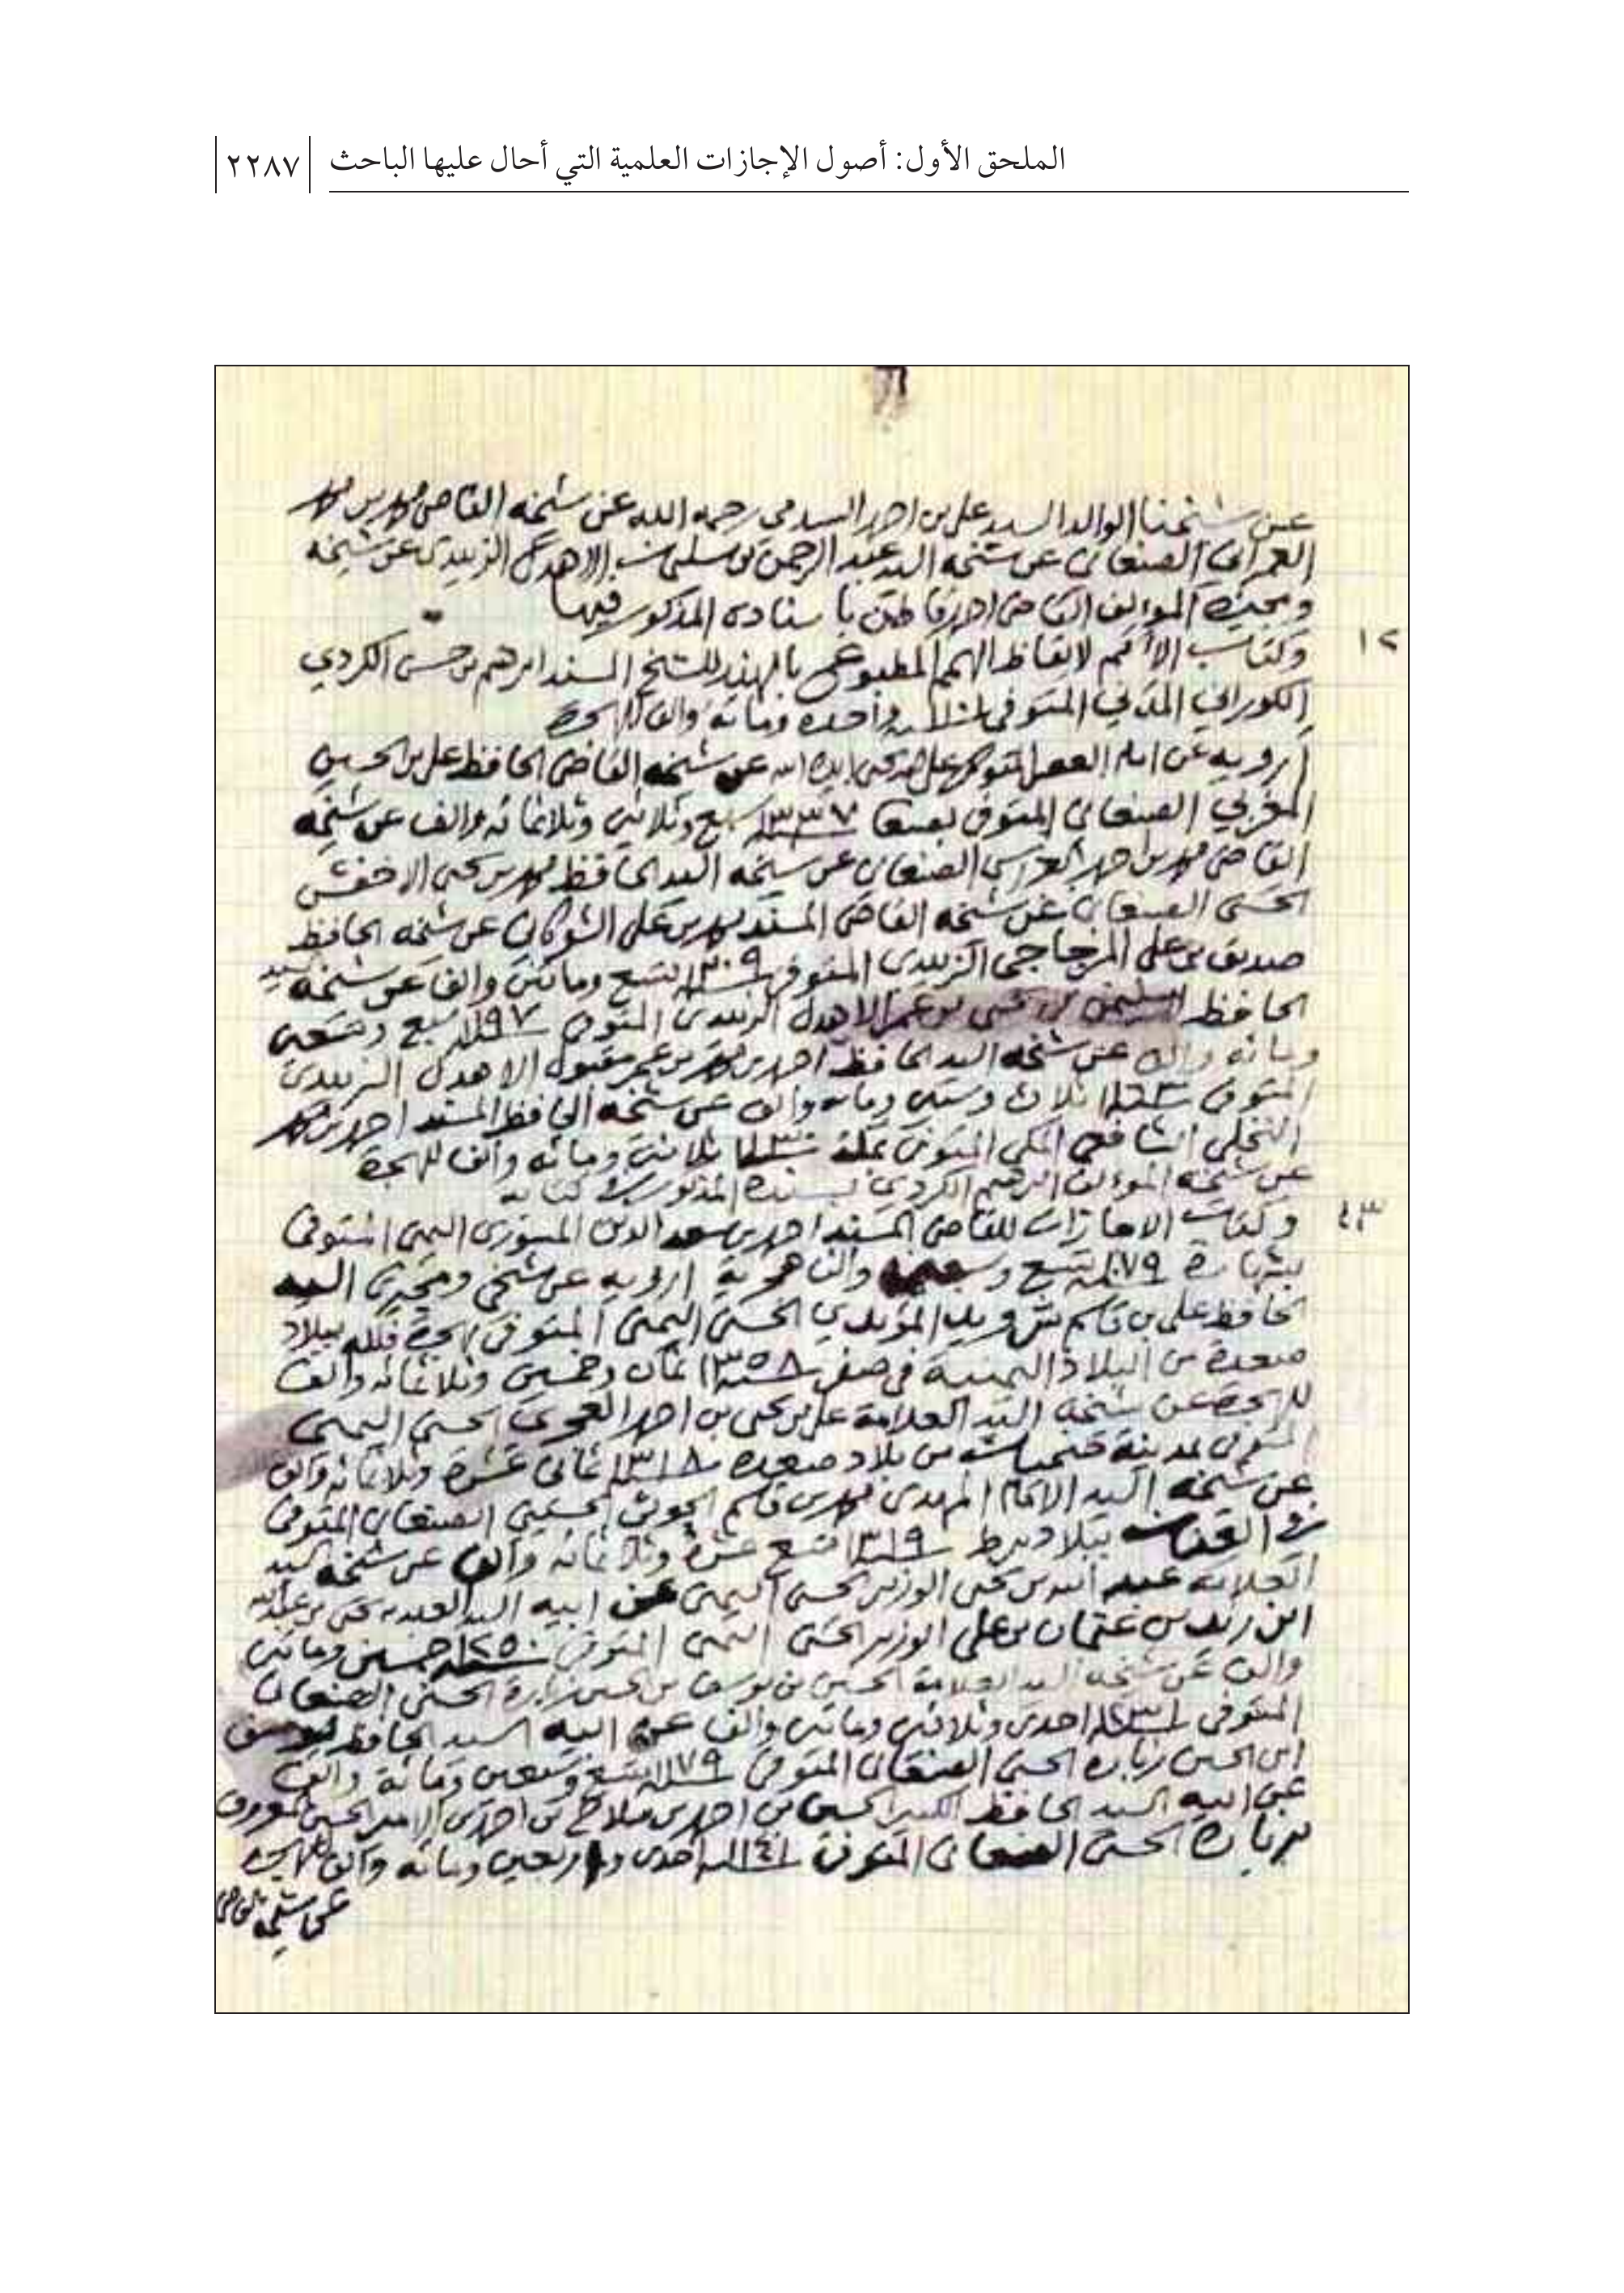 الملحق الأول: أصول الإجازات العلمية التي أحال عليها الباحث ٢٢٨٧
عن شيخنا الوالد السيد علي بن احمد السدمي رحمه الله عن شيخه القاضي محمد بن محمد
العمراني الصنعاني عن شيخه السيد عبد الرحمن بن سليمان الاهدل الزبيدي عن شيخه
ومجيزه المؤلف القاضي احمد قاطن با سناده المذكور فيها
١٢ وكتاب الأمم لايقاظ الهمم المطبوع بالهند للشيخ المسند ابرهيم بن حسن الكردي
الكوراني المدني المتوفى سنة واحده ومائه والف
أرويه عن امام العصر المتوكل على الله يحيى ايده الله عن شيخه القاضي الحافظ علي بن الحسين
المغربي الصنعاني المتوفى بصنعا سنة ١٣٣٧ سبع وثلاثين وثلاثمائه والف عن شيخه
القاضي محمد بن احمد العراسي الصنعاني عن شيخه السيد الحافظ محمد بن يحيى الاخفش
الحسني الصنعاني عن شيخه القاضي المسند محمد بن علي الشوكاني عن شيخه الحافظ
صديق بن علي المزجاجي الزبيدي المتوفى سنة ١٢٠٩ تسع ومائتين والف عن شيخه السيد
الحافظ سليمن بن يحيى بن عمر الاهدل الزبيدي المتوفى سنة ١١٩٧ سبع وتسعين
ومائه والف عن شيخه السيد الحافظ احمد بن محمد بن عمر مقبول الاهدل الزبيدي
المتوفى سنة ١١٦٣ ثلاث وستين ومائه والف عن شيخه الحافظ المسند احمد بن محمد
النخلي الشافعي المكي المتوفى بمكة سنة ١١٣٠ ثلاثين ومائه والف للهجرة
عن شيخه المؤلف ابرهيم الكردي بسنده المذكور في كتابه
١٣ وكتاب الاجازات للقاضي المسند احمد بن سعد الدين المسوري اليمني المتوفى
بشهارة سنة ١٠٧٩ تسع وسبعين والف هجرية ارويه عن شيخي ومجيزي السيد
الحافظ علي بن قاسم المؤيدي الحسني اليمني المتوفى فلله ببلاد
صعدة من البلاد اليمنية في صفر سنة ١٣٥٨ ثمان وخمسين وثلاثمائه والف
للهجرة عن شيخه السيد العلامة علي بن يحيى بن احمد العجري الحسني اليمني
المتوفى بمدينة ضحيان من بلاد صعده سنة ١٣١٨ ثماني عشرة وثلاثمائه والف
عن شيخه السيد الامام المهدي محمد بن قاسم الحوثي الحسيني الصنعاني المتوفى
ببلاد برط سنة ١٣١٩ تسع عشرة وثلاثمائه والف عن شيخه السيد
العلامه عبد الله بن يحيى الوزير الحسني اليمني عن ابيه السيد العلامه يحيى بن عبدالله
ابن زيد بن عثمان بن علي الوزير الحسني اليمني المتوفى سنة ١٢٥٠ خمسين ومائتين
والف عن شيخه السيد العلامة الحسين بن يوسف بن الحسين زبارة الحسني الصنعاني
المتوفى سنة ١٢٣١ احدى وثلاثين ومائتين والف عن ابيه السيد الحافظ يوسف
ابن الحسين زباره الحسني الصنعاني المتوفى سنة ١١٧٩ تسع وسبعين ومائة والف
عن ابيه السيد الحافظ الكبير الحسين بن احمد بن صلاح بن احمد بن الامير الحسين المعروف
بزبارة الحسني الصنعاني المتوفى سنة ١١٤١ احدى واربعين ومائه والف للهجرة